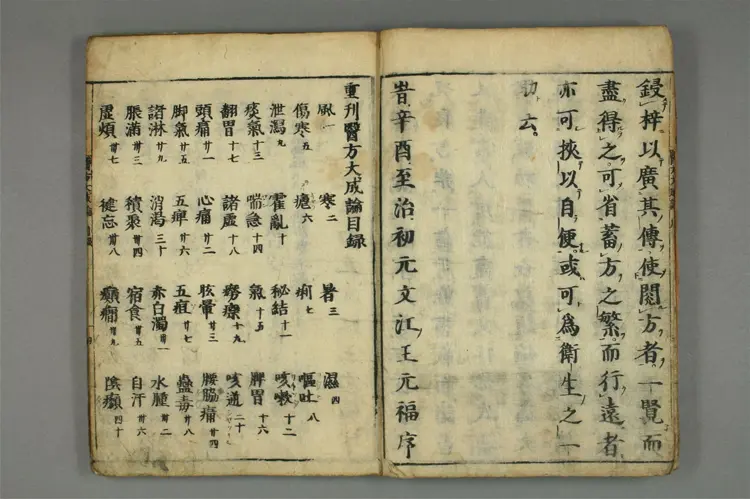 鋟梓以廣其傳使閱方者一覽而
盡得之可省蓄方之繁而行遠者
亦可挾以自便或可爲衛生之一
助云
旹辛酉至治初元文江王元福序
重刊醫方大成論目錄
風一 寒二 暑三 濕四
傷寒五 瘧六 痢七 嘔吐八
泄瀉九 霍亂十 秘結十一 咳嗽十二
痰氣十三 喘急十四 氣十五 脾胃十六
翻胃十七 諸虛十八 勞瘵十九 咳逆二十
頭痛廿一 心痛廿二 眩暈廿三 腰脇痛廿四
脚氣廿五 五痺廿六 五疸廿七 蠱毒廿八
諸淋廿九 消渴三十 赤白濁卅一 水腫卅二
脹滿卅三 積聚卅四 宿食卅五 自汗卅六
虛煩卅七 健忘卅八 癲癇卅九 陰㿗四十